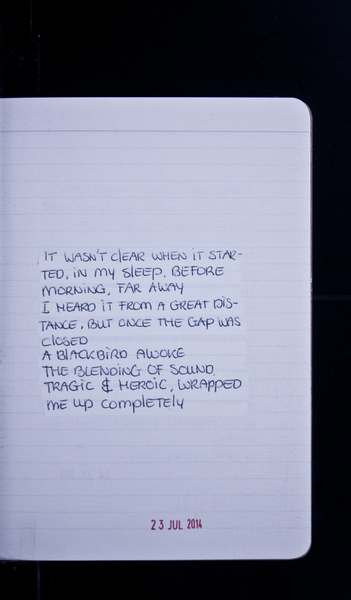 IT WASN'T CLEAR WHEN IT STAR-
TED, IN MY SLEEP, BEFORE
MORNING, FAR AWAY
I HEARD IT FROM A GREAT DIS-
TANCE, BUT ONCE THE GAP WAS
CLOSED
A BLACKBIRD AWOKE
THE BLENDING OF SOUND
TRAGIC & HEROIC, WRAPPED
ME UP COMPLETELY
23 JUL 2014